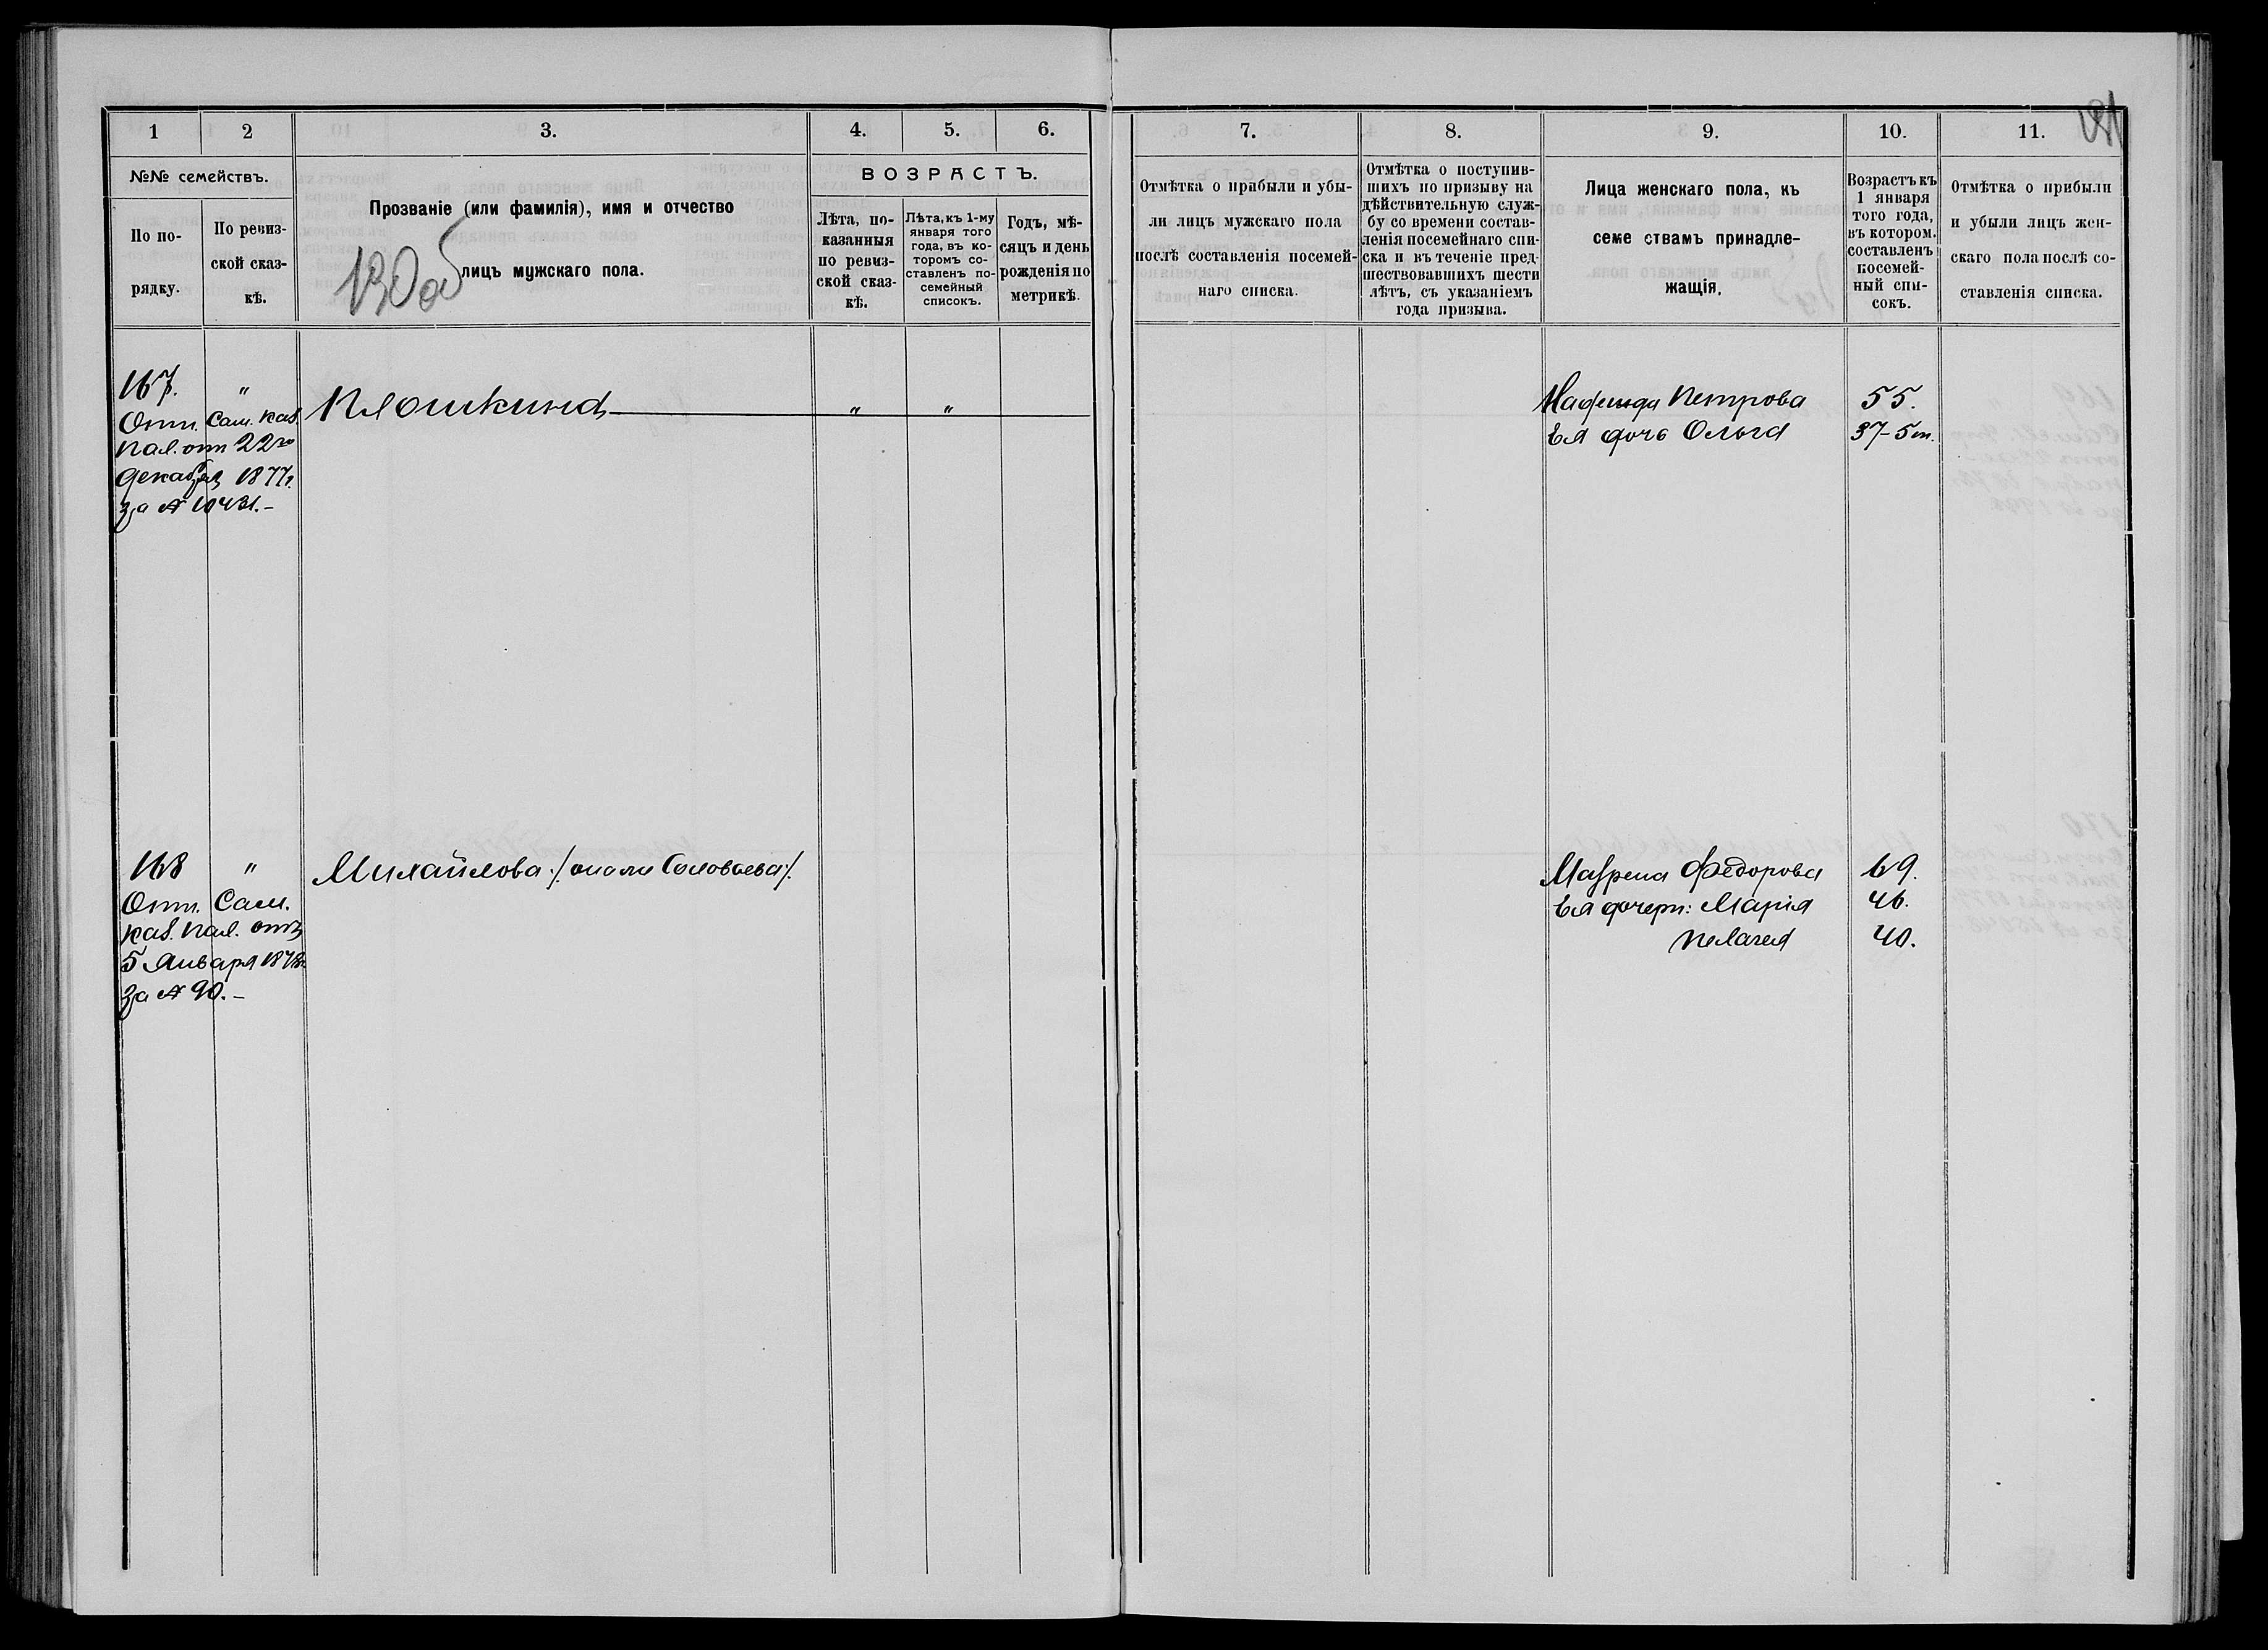 131
1 2 3. 4. 5. 6. 7. 8. 9. 10. 11.
№№ семействъ.
По по-
рядку.
По ревиз-
ской сказ-
кѣ.
Прозваніе (или фамилія), имя и отчество
лицъ мужскаго пола.
130об
ВОЗРАСТЪ.
Лѣта, по-
казанныя
по ревиз-
ской сказ-
кѣ.
Лѣта, къ 1-му
января того
года, въ ко-
торомъ со-
ставленъ по-
семейный
списокъ.
Годъ, мѣ-
сяцъ и день
рожденія по
метрикѣ.
Отмѣтка о прибыли и убы-
ли лицъ мужскаго пола
послѣ составленія посемей-
наго списка.
Отмѣтка о поступив-
шихъ по призыву на
дѣйствительную служ-
бу со времени состав-
ленія посемейнаго спи-
ска и въ теченіе пред-
шествовавшихъ шести
лѣтъ, съ указаніемъ
года призыва.
Лица женскаго пола, къ
семе ствамъ принадле-
жащія.
Возрастъ къ
1 января
того года,
въ котором.
составленъ
посемей-
ный спи-
сокъ.
Отмѣтка о прибыли
и убыли лицъ жен-
скаго пола послѣ со-
ставленія списка.
167. "
Отт. Сам. каз.
пал. от 22го
декабря 1877г.
за №10431.-
" "
Надежда Петрова 55.
Ея дочь Ольга 37-5 м.
168 "
Отт. Сам.
каз. пал. отъ
5 Января 1878г.
за № 90.-
Михайлова ./. она ли Соловьева ./.
Маврена Федорова 69.
Ея дочери: Марія 46.
Пелагея 40.